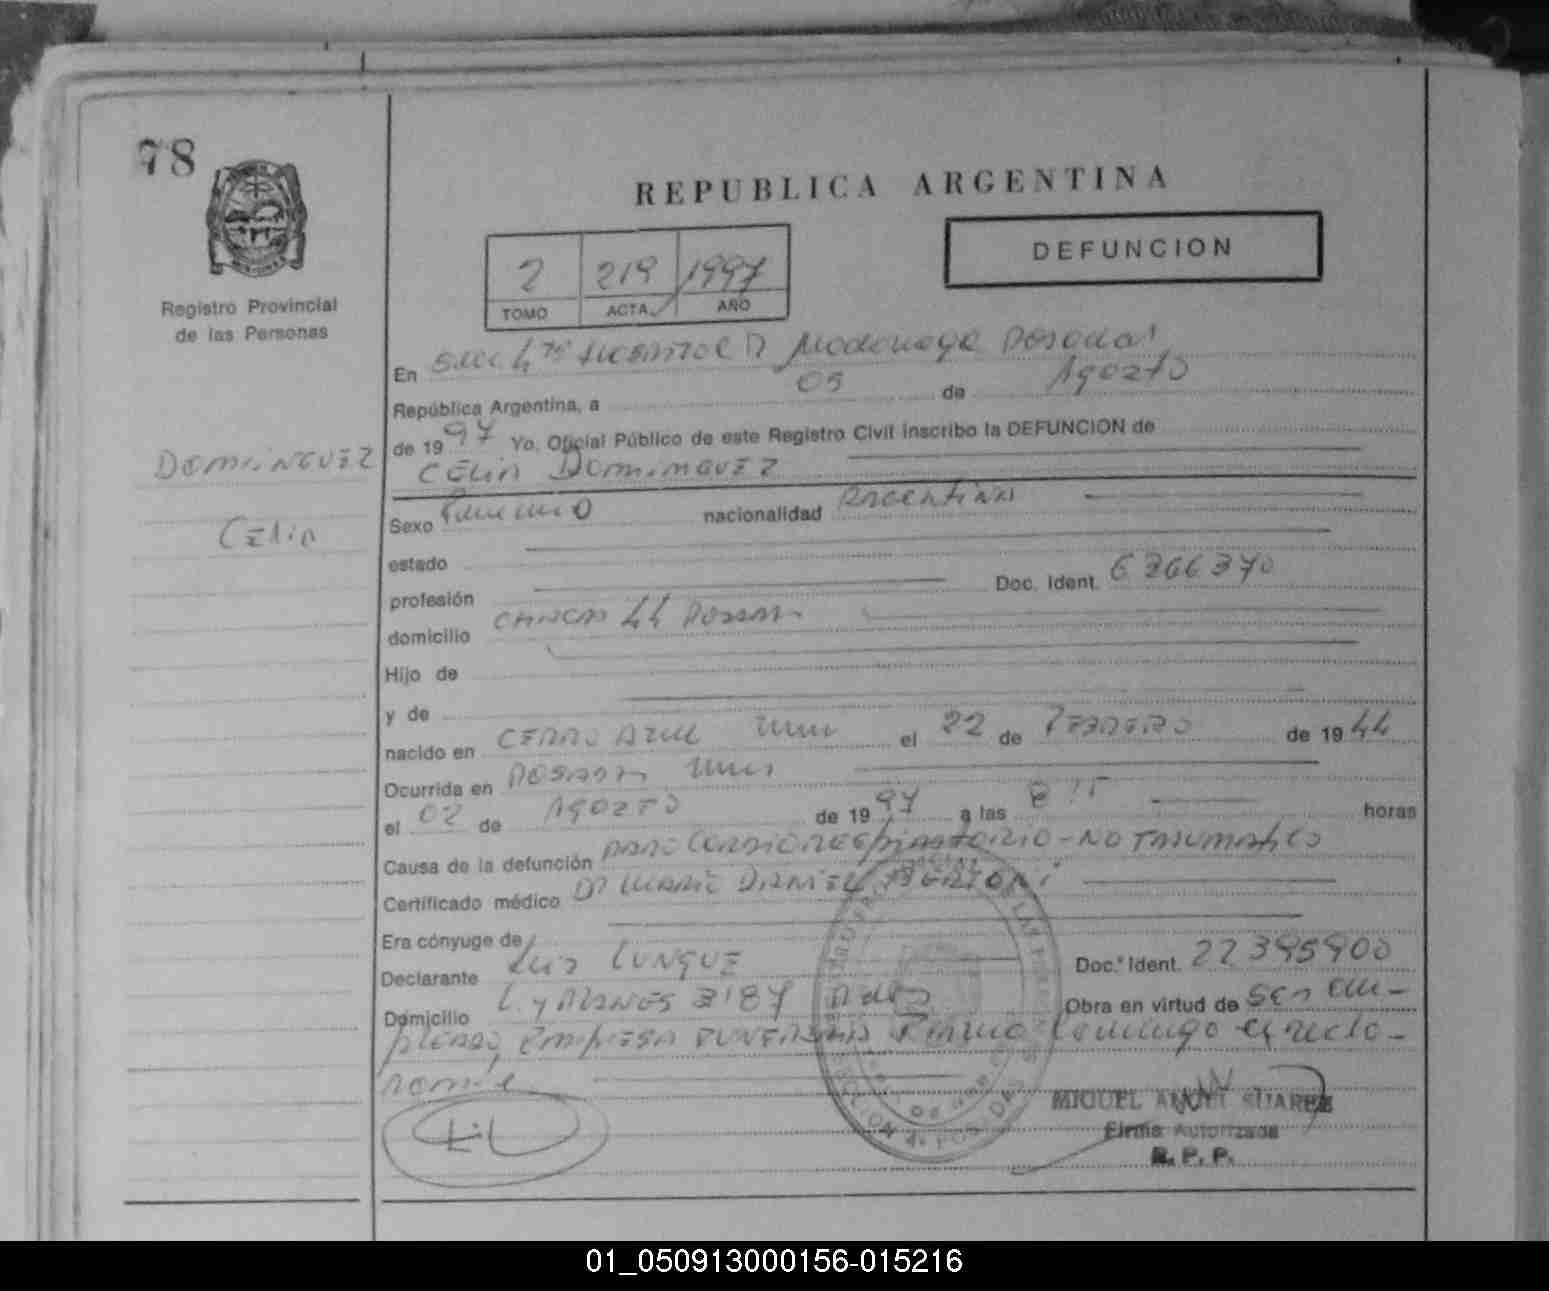 78
REPUBLICA ARGENTINA
DEFUNCION
2 219 1997
TOMO ACTA AÑO
Registro Provincial
de las Personas
En Secc 4ta Hospital R Madariaga Posadas
República Argentina, a 05 de Agozto
de 1997 Yo, Oficial Público de este Registro Civil inscribo la DEFUNCION de
DOMINGUEZ
CELIA DOMINGUEZ
Celia
Sexo Femenino nacionalidad Argentina
estado
profesión Doc. Ident. 6366370
domicilio CHACRA 44 Posadas
Hijo de
y de
nacido en CERRO AZUL Mnes el 22 de FEBRERO de 1944
Ocurrida en Posadas Mnes
el 02 de Agozto de 1997 a las 8 15 horas
Causa de la defunción paro Cardiorespiratorio - NO TRAUMATICO
Certificado médico Dr Mario DANIEL BERTONI
Era cónyuge de
Declarante Luis LUNQUE Doc.ª Ident. 22395900
Domicilio L. y PLANES 3187 Pdas Obra en virtud de Ser em-
pleado, EMPRESA FUNERARIA Firma Comingo
MIGUEL ANGEL SUAREZ
Firma Autorizada
R. P. P.
SECCION 4ª POSADAS
01_050913000156-015216